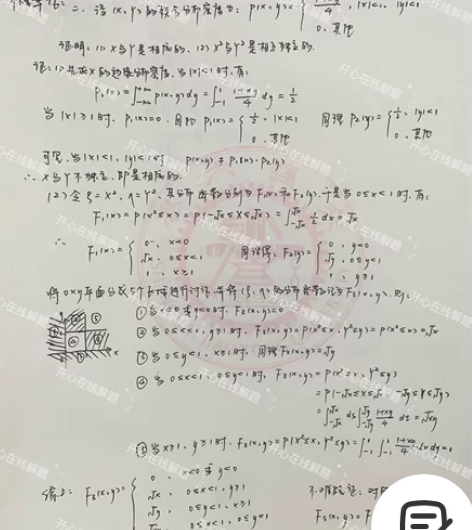 二、设(X,Y)的联合分布密度为: p(x,y)= { (1+xy)/4, |x|<1, |y|<1
0, 其他
证明: (1) X与Y是相关的, (2) X²与Y²是相互独立的.
证: (1) 先求X的边缘分布密度, 当|x|<1时, 有:
P₁(x)=∫_{-∞}^{+∞} p(x,y)dy=∫_{-1}^{1} (1+xy)/4 dy=1/2
当|x|≥1时, P₁(x)=0. 因此 P₁(x)= { 1/2, |x|<1 同理 P₂(y)= { 1/2, |y|<1
0, 其他 0, 其他
可见, 当|x|<1, |y|<1时 p(x,y)≠P₁(x)·P₂(y)
∴ X与Y不独立, 即是相关的.
(2) 令ξ=X², η=Y², 其分布函数分别为F₁(x)和F₂(y), 于是当0≤x<1时, 有:
F₁(x)=P(X²≤x)=P(-√x≤X≤√x)=∫_{-√x}^{√x} 1/2 dx=√x
∴ F₁(x)= { 0, x<0 同理得, F₂(y)= { 0, y<0
√x, 0≤x<1 √y, 0≤y<1
1, x≥1 1, y≥1
将oxy平面分成5个区域进行讨论, 并将(ξ,η)的分布函数记为F₃(x,y), 则:
① 当x<0或y<0时 F₃(x,y)=0
② 当0≤x<1, y≥1时, F₃(x,y)=P(X²≤x, Y²≤y)=P(X²≤x)=√x
③ 当0≤y<1, x≥1时, 同理F₃(x,y)=√y
④ 当0≤x<1, 0≤y<1时, F₃(x,y)=P(X²≤x, Y²≤y)
=P(-√x≤X≤√x, -√y≤Y≤√y)
=∫_{-√x}^{√x} ds∫_{-√y}^{√y} (1+xy)/4 dt=√xy
⑤ 当x≥1, y≥1时, F₃(x,y)=P(X²≤x, Y²≤y)=∫_{-1}^{1}∫_{-1}^{1} (1+xy)/4 dxdy=1
综上: F₃(x,y)= { 0, x<0或y<0
√x, 0≤x<1, y≥1 不难验证: 对
√y, 0≤y<1, x≥1 F₃(x,y)=F
√xy, 0≤x<1, 0≤y<1
开心在线解题